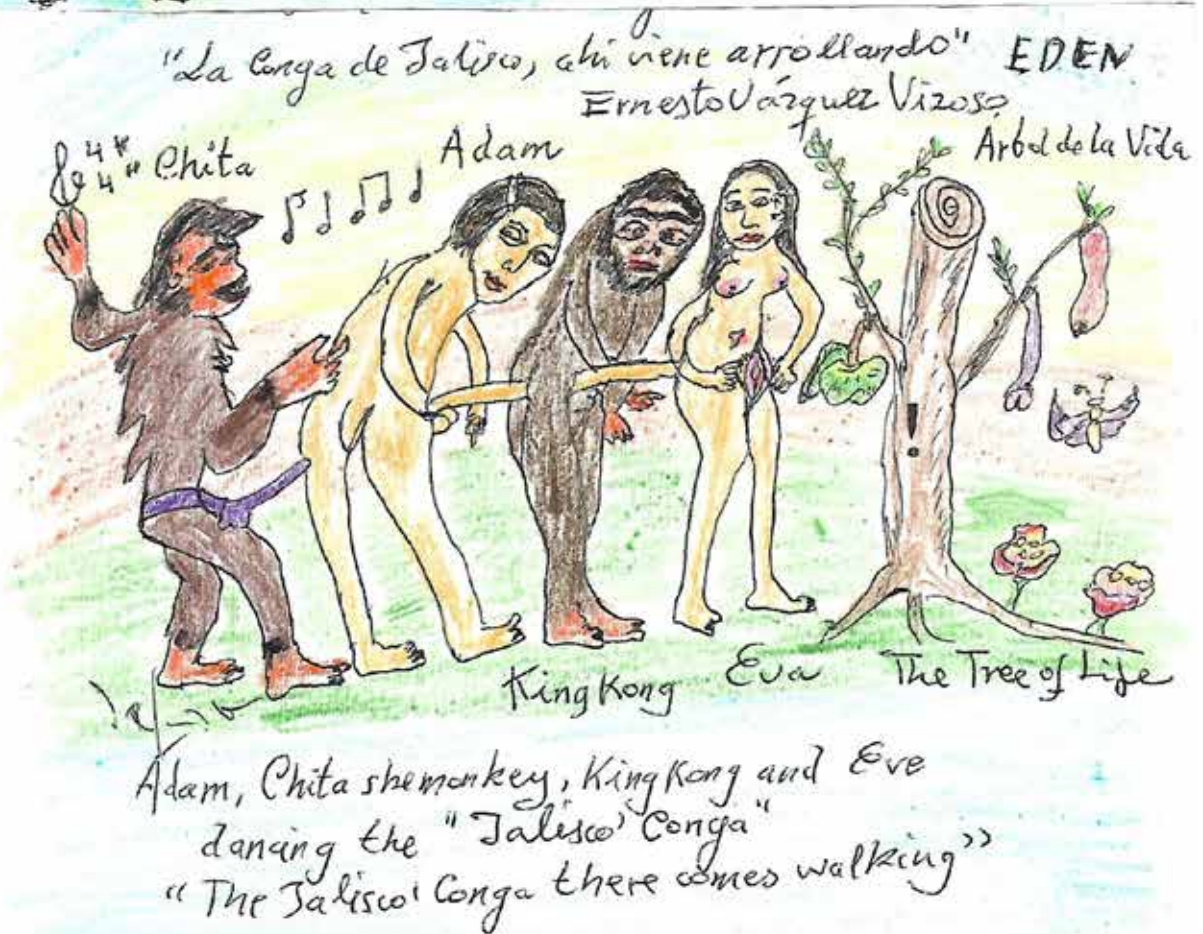 "La Conga de Jalisco, ahi viene arrollando"
EDEN
Ernesto Vázquez Vizoso
Chita
Adam
Árbol de la Vida
King Kong
Eva
The Tree of Life
Adam, Chita shemonkey, King Kong and Eve
dancing the "Jalisco' Conga"
"The Jalisco' Conga there comes walking"